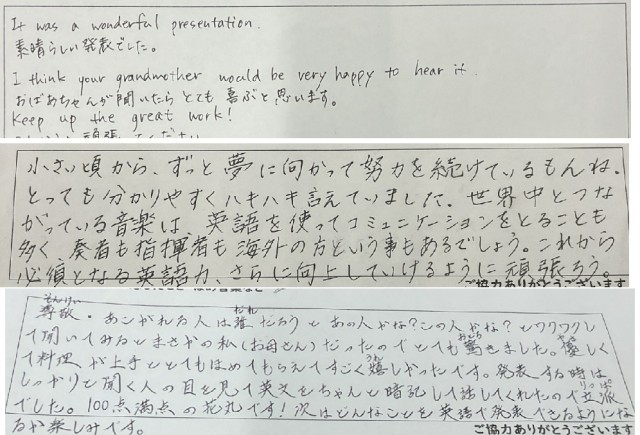 It was a wonderful presentation.
素晴らしい発表でした。
I think your grandmother would be very happy to hear it.
おばあちゃんが聞いたらとても喜ぶと思います。
Keep up the great work!
頑張ってください
小さい頃から、ずっと夢に向かって努力を続けているもんね。
とっても分かりやすくハキハキ言えていました。世界中とつな
がっている音楽は、英語を使ってコミュニケーションをとることも
多く、奏者も指揮者も海外の方という事もあるでしょう。これから
必須となる英語力、さらに向上していけるように頑張ろう。
ご協力ありがとうございます
そんけい だれ
尊敬・あこがれる人は誰だろうとあの人かな?この人かな?とワクワクし
おどろ やさ
て聞いてみるとまさかの私(お母さん)だったのでとても驚きました。優しく
うれ
て料理が上手ととてもほめてもらえてすごく嬉しかったです。発表する時は
しっかりと聞く人の目を見て英文をちゃんと暗記して話してくれたので立派
りっぱ
でした。100点満点の花丸です!次はどんなことを英語で発表できるようにな
るか楽しみです。
ご協力ありがとうございます